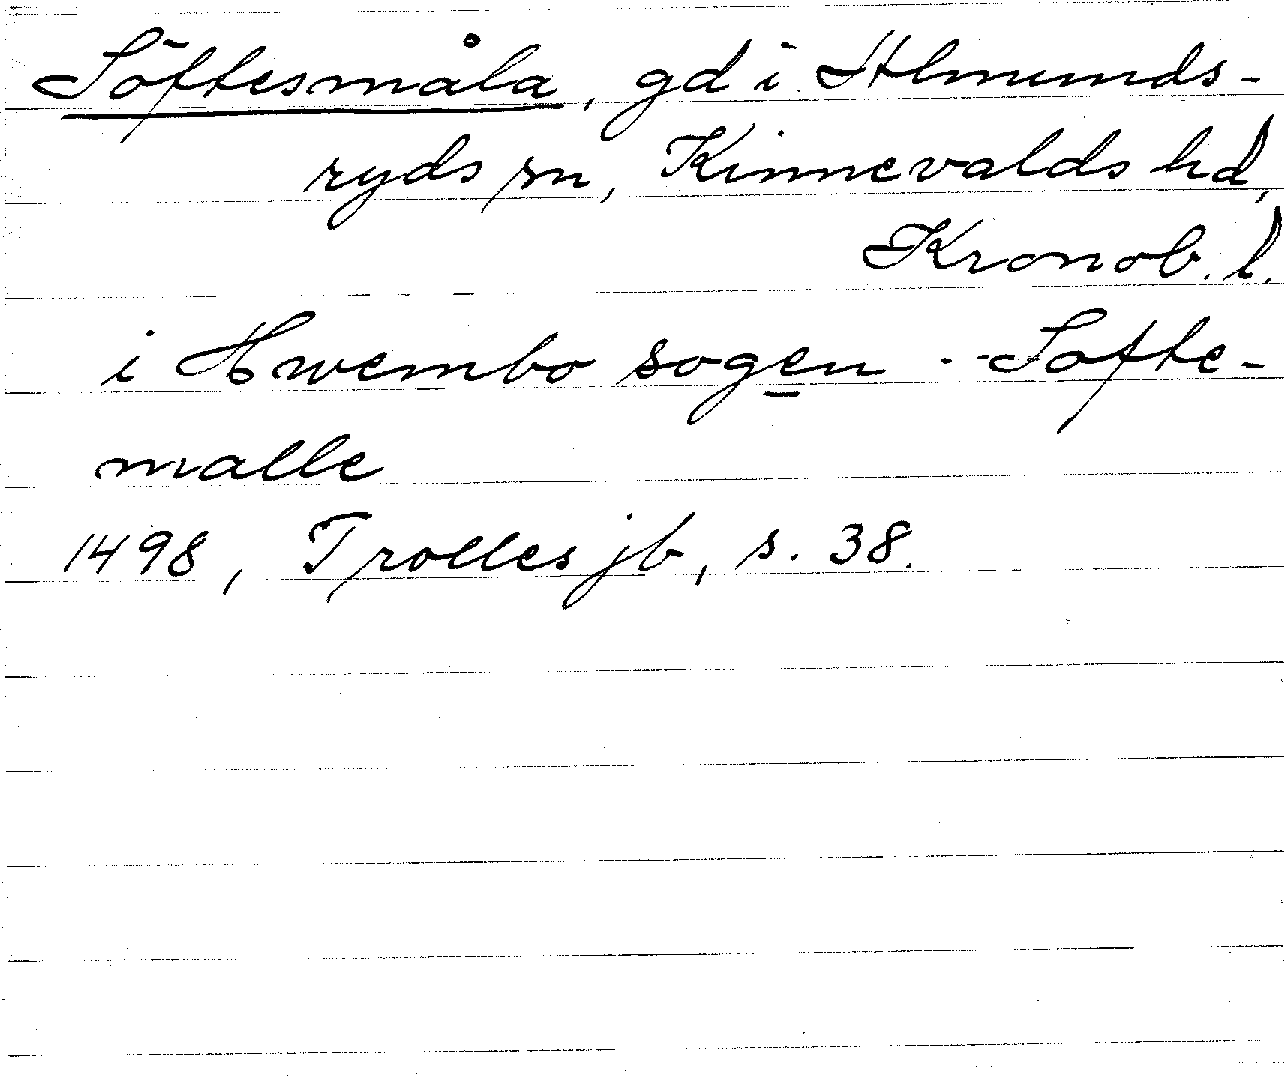 Söftesmåla, gd i Almunds-
ryds sn, Kinnevalds hd,
Kronob. l.
i Hwembo sogen - - Softe-
malle
1498, Trolles jb, s. 38.